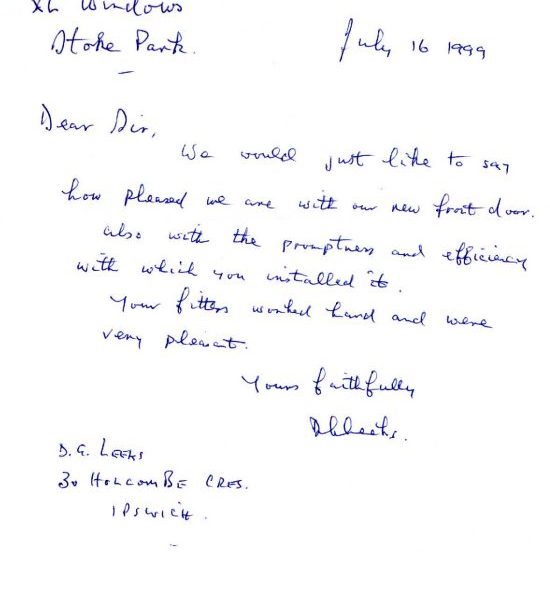 XL Windows
Stoke Park.
July 16 1999
Dear Sir,
We would just like to say
how pleased we are with our new front door.
also with the promptness and efficiency
with which you installed it.
Your fitters worked hard and were
very pleasant.
Yours faithfully
D. G. LEEKS
30 HOLCOMBE CRES.
IPSWICH.